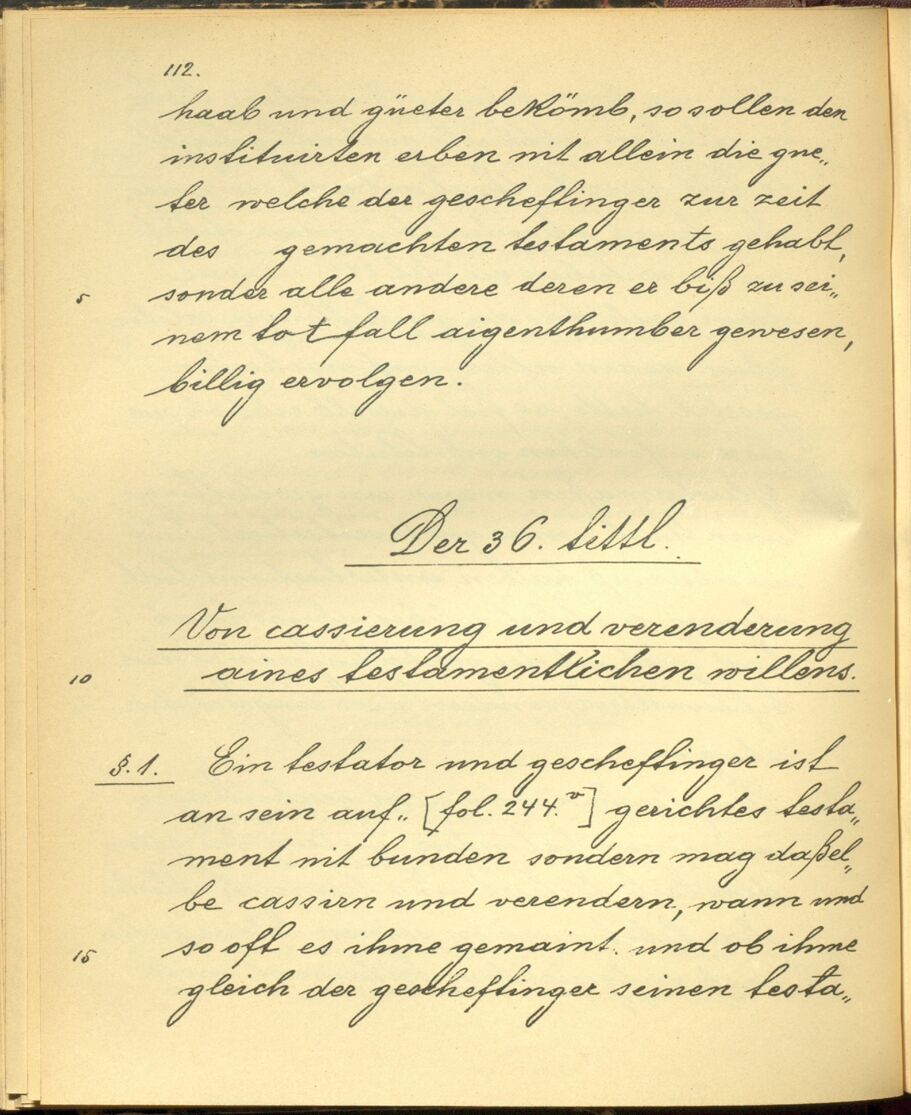 112.
haab und güeter bekömb, so sollen den
instituirten erben nit allein die gue„
ter welche der gescheftinger zur zeit
des gemachten testaments gehabt,
5 sonder alle andere deren er biß zu sei„
nem totfall aigenthumber gewesen,
billig ervolgen.
Der 36. tittl.
Von cassierung und verenderung
10 aines testamentlichen willens.
§. 1. Ein testator und gescheftinger ist
an sein auf„ [fol. 244.v] gerichtes testa„
ment nit bunden sondern mag daßel„
be cassirn und verendern, wann und
15 so oft es ihme gemaint. und ob ihme
gleich der gescheftinger seinen testa„